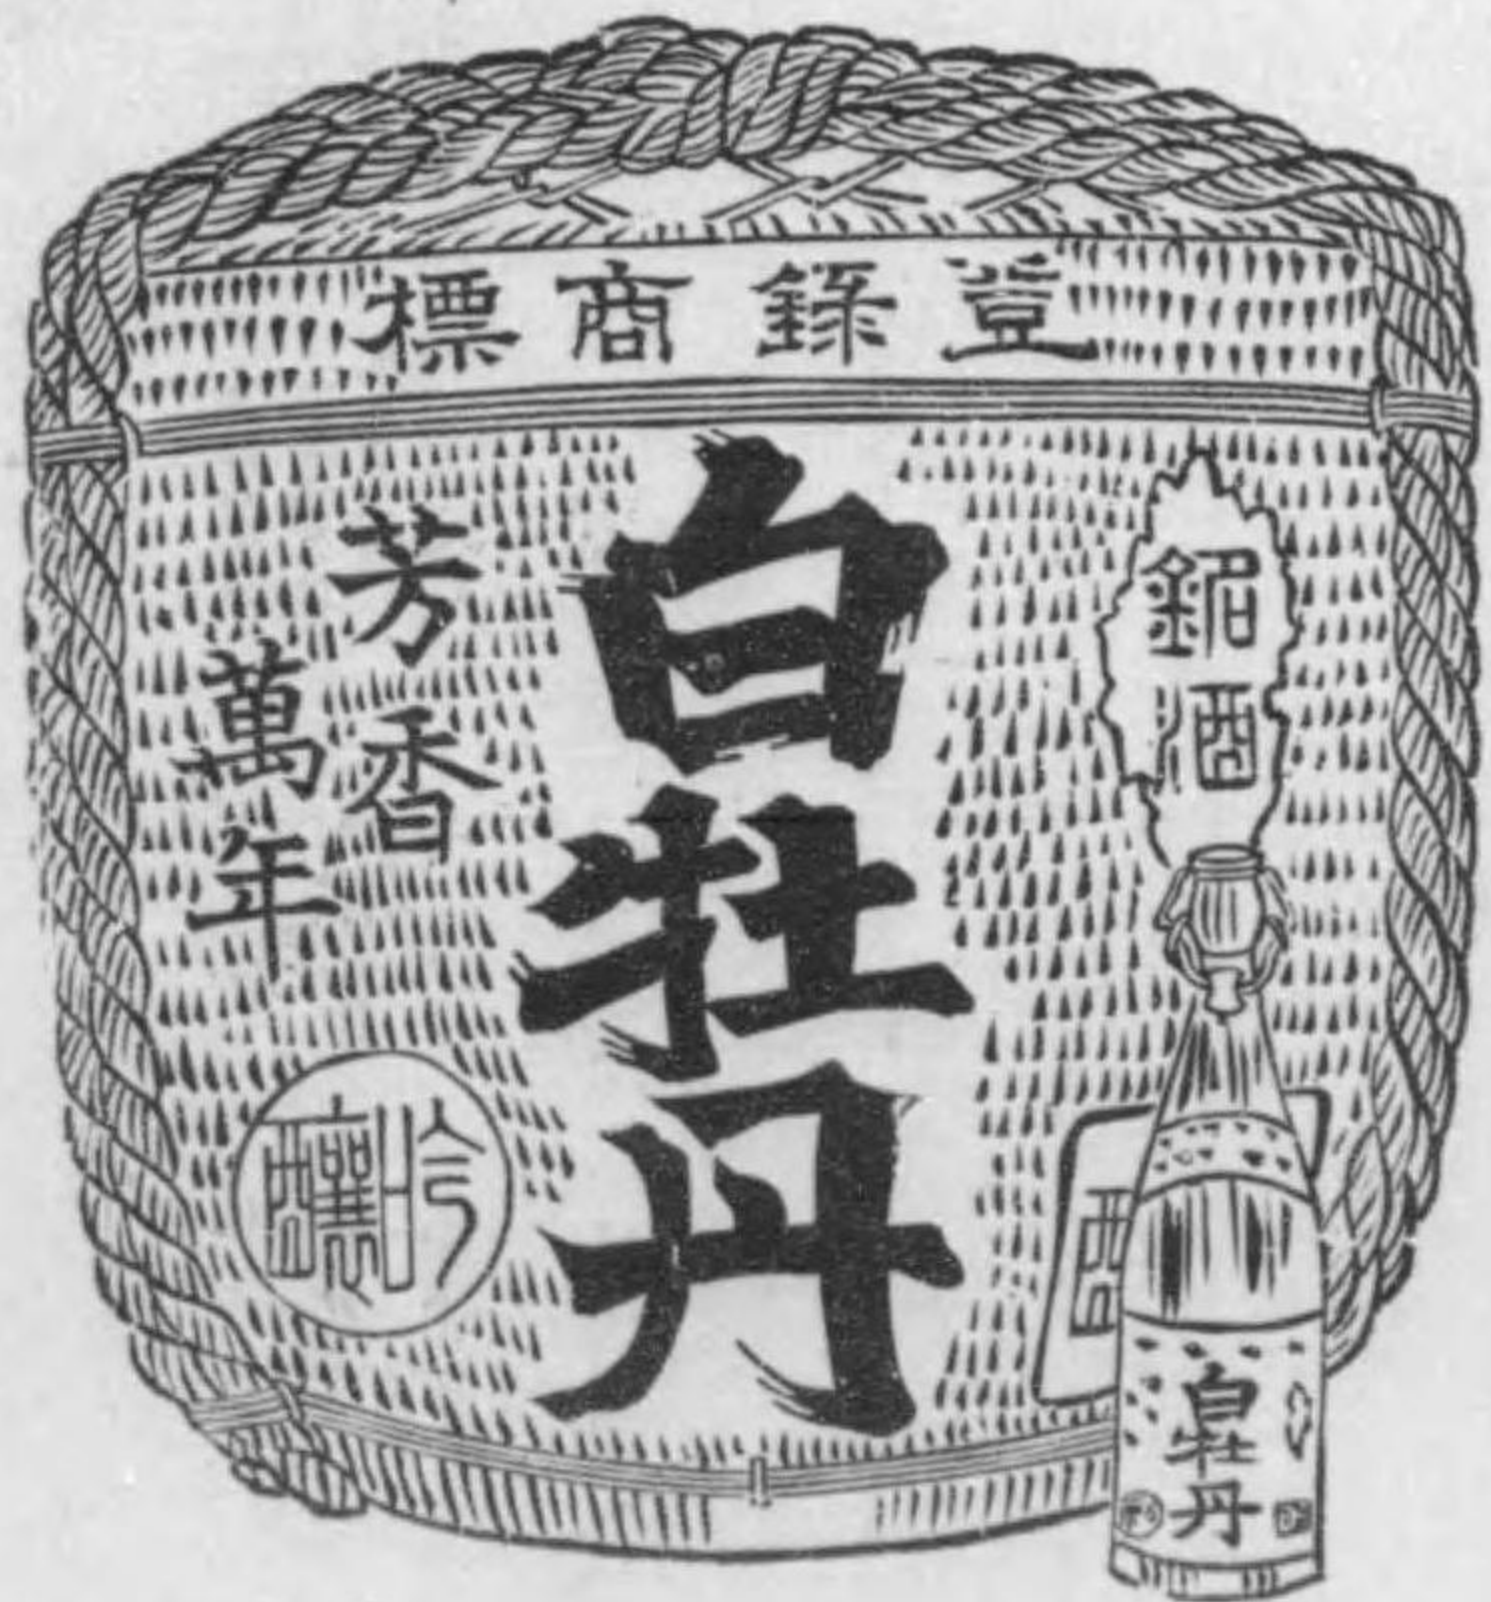 登錄商標
銘酒
白牡丹
芳香
萬年
吟釀
白牡丹